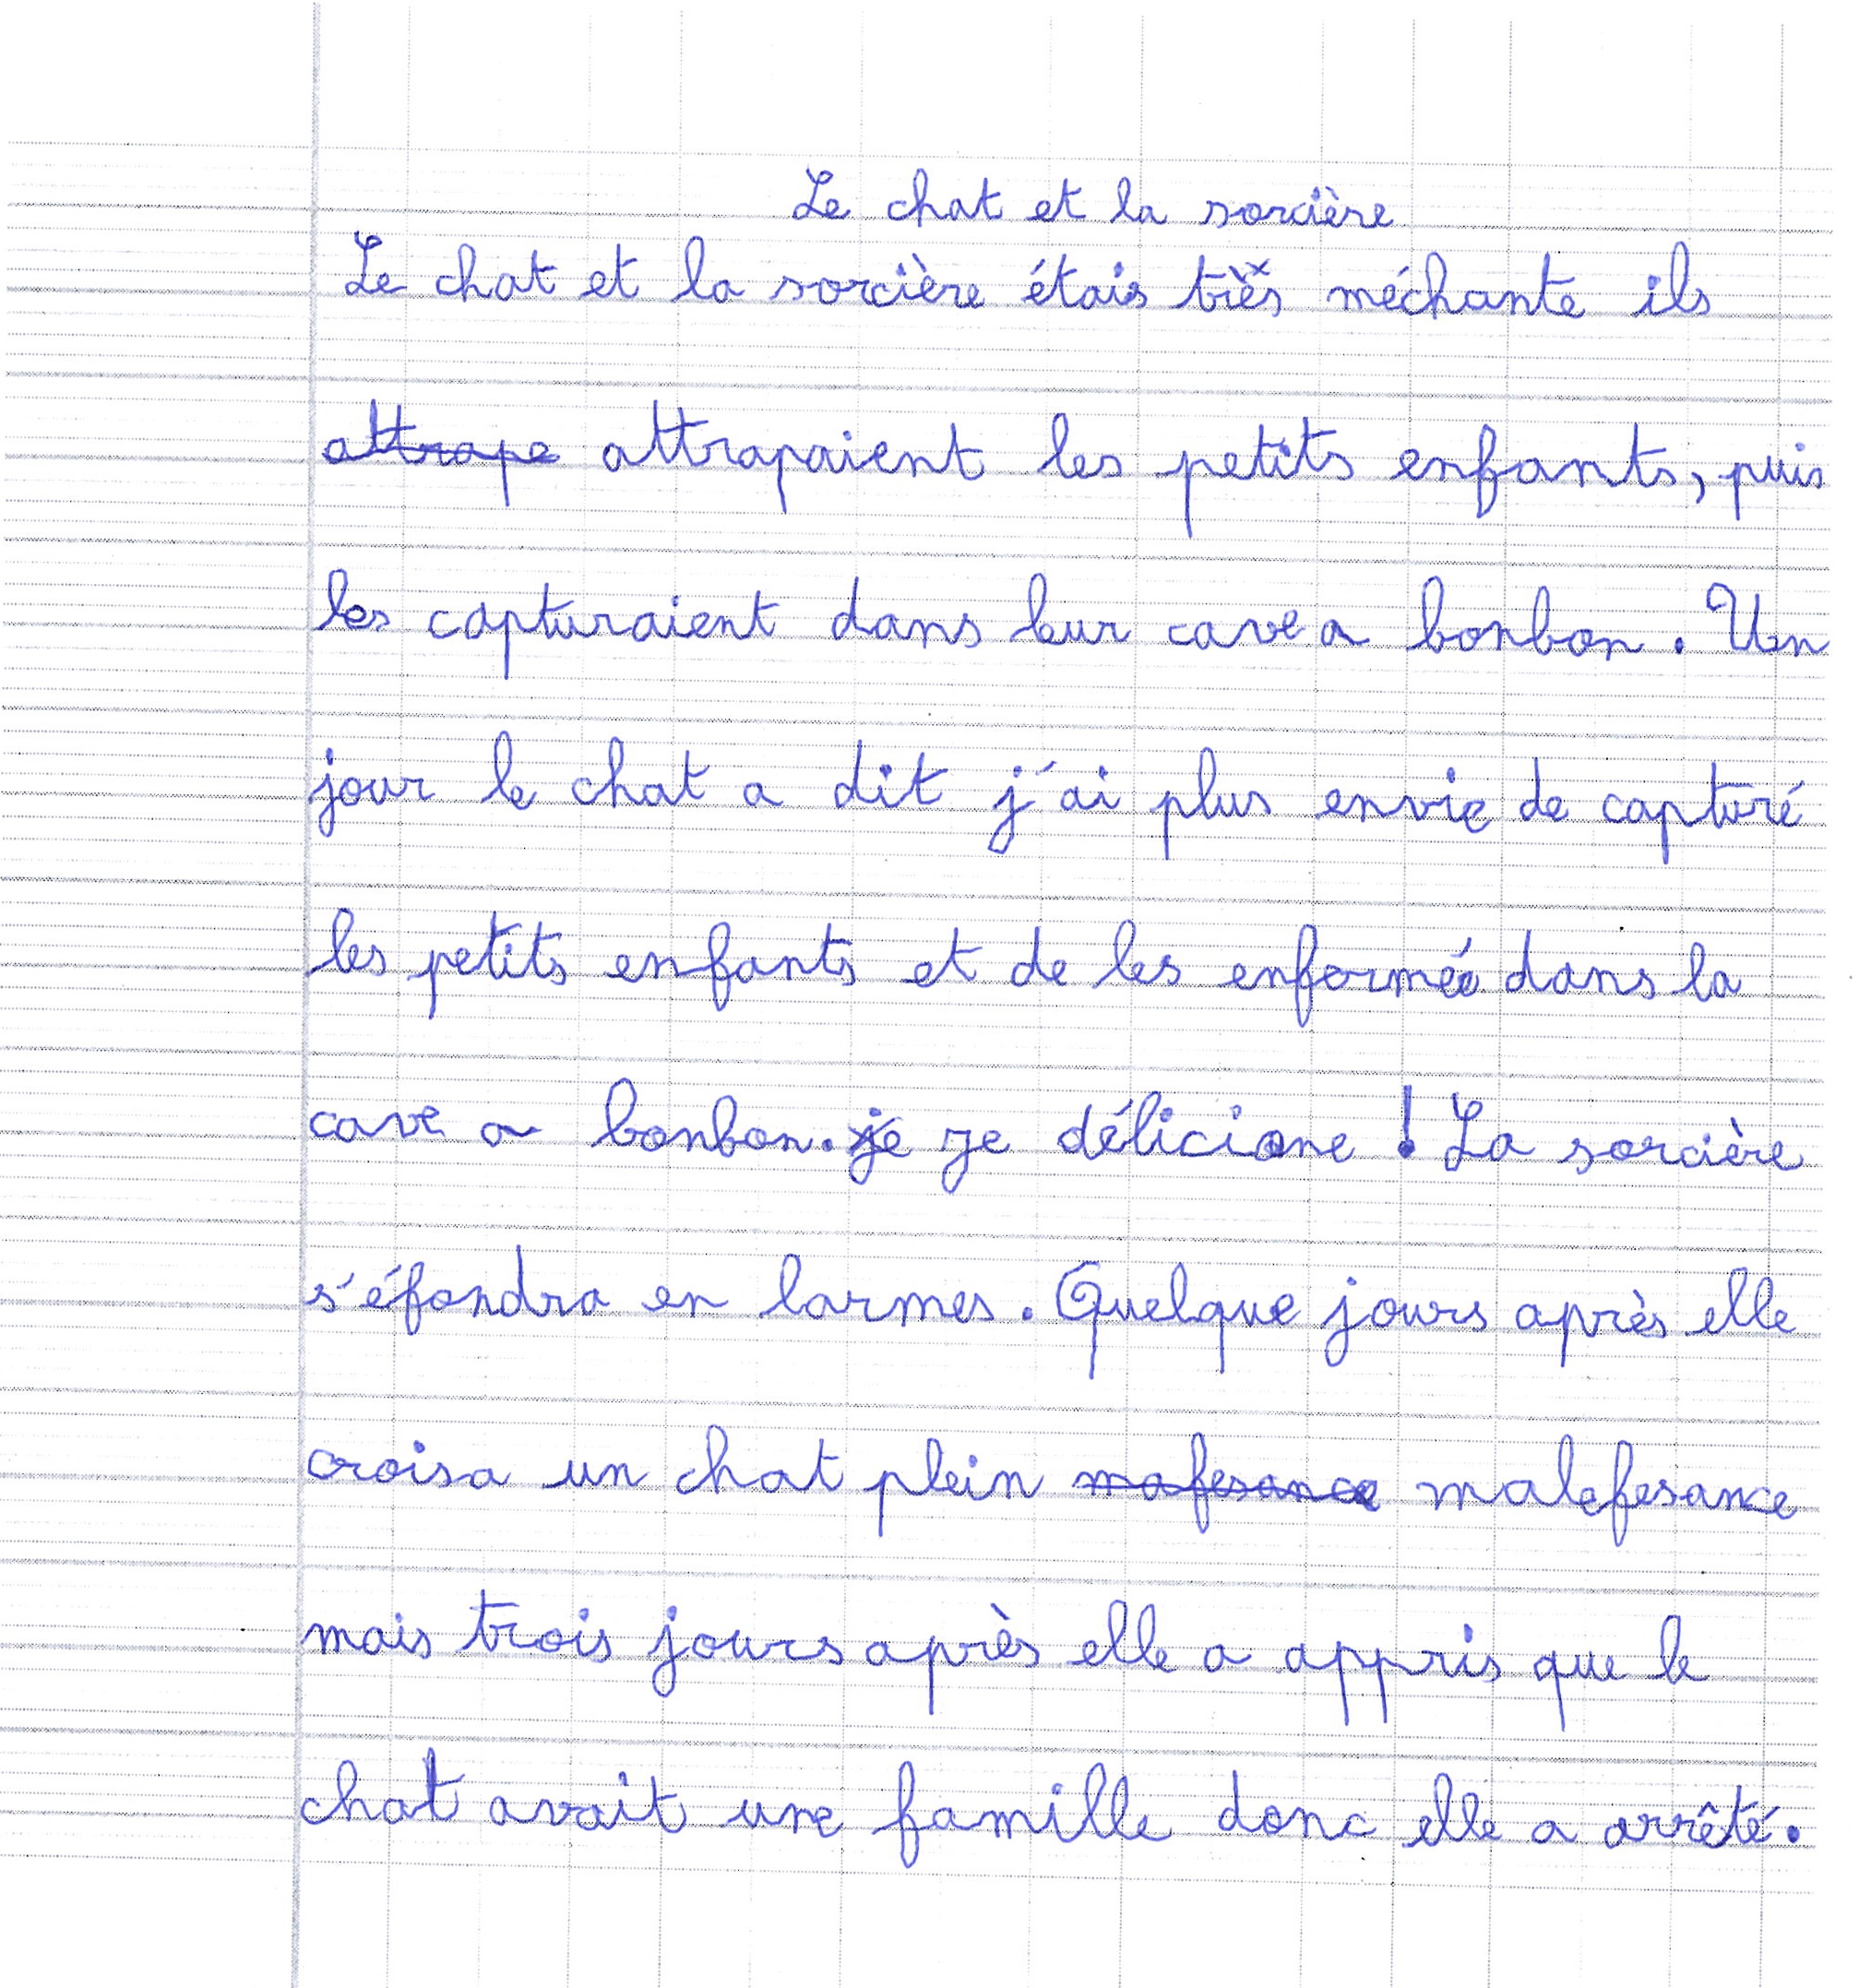 Le chat et la sorcière
Le chat et la sorcière étais très méchante ils
attrape attrapaient les petits enfants, puis
les capturaient dans leur cave a bonbon. Un
jour le chat a dit j'ai plus envie de capturé
les petits enfants et de les enfermée dans la
cave a bonbon. je je délicione ! La sorcière
s'éfondra en larmes. Quelque jours après elle
croisa un chat plein mafesance malefesance
mais trois jours après elle a appris que le
chat avait une famille donc elle a arrêté.